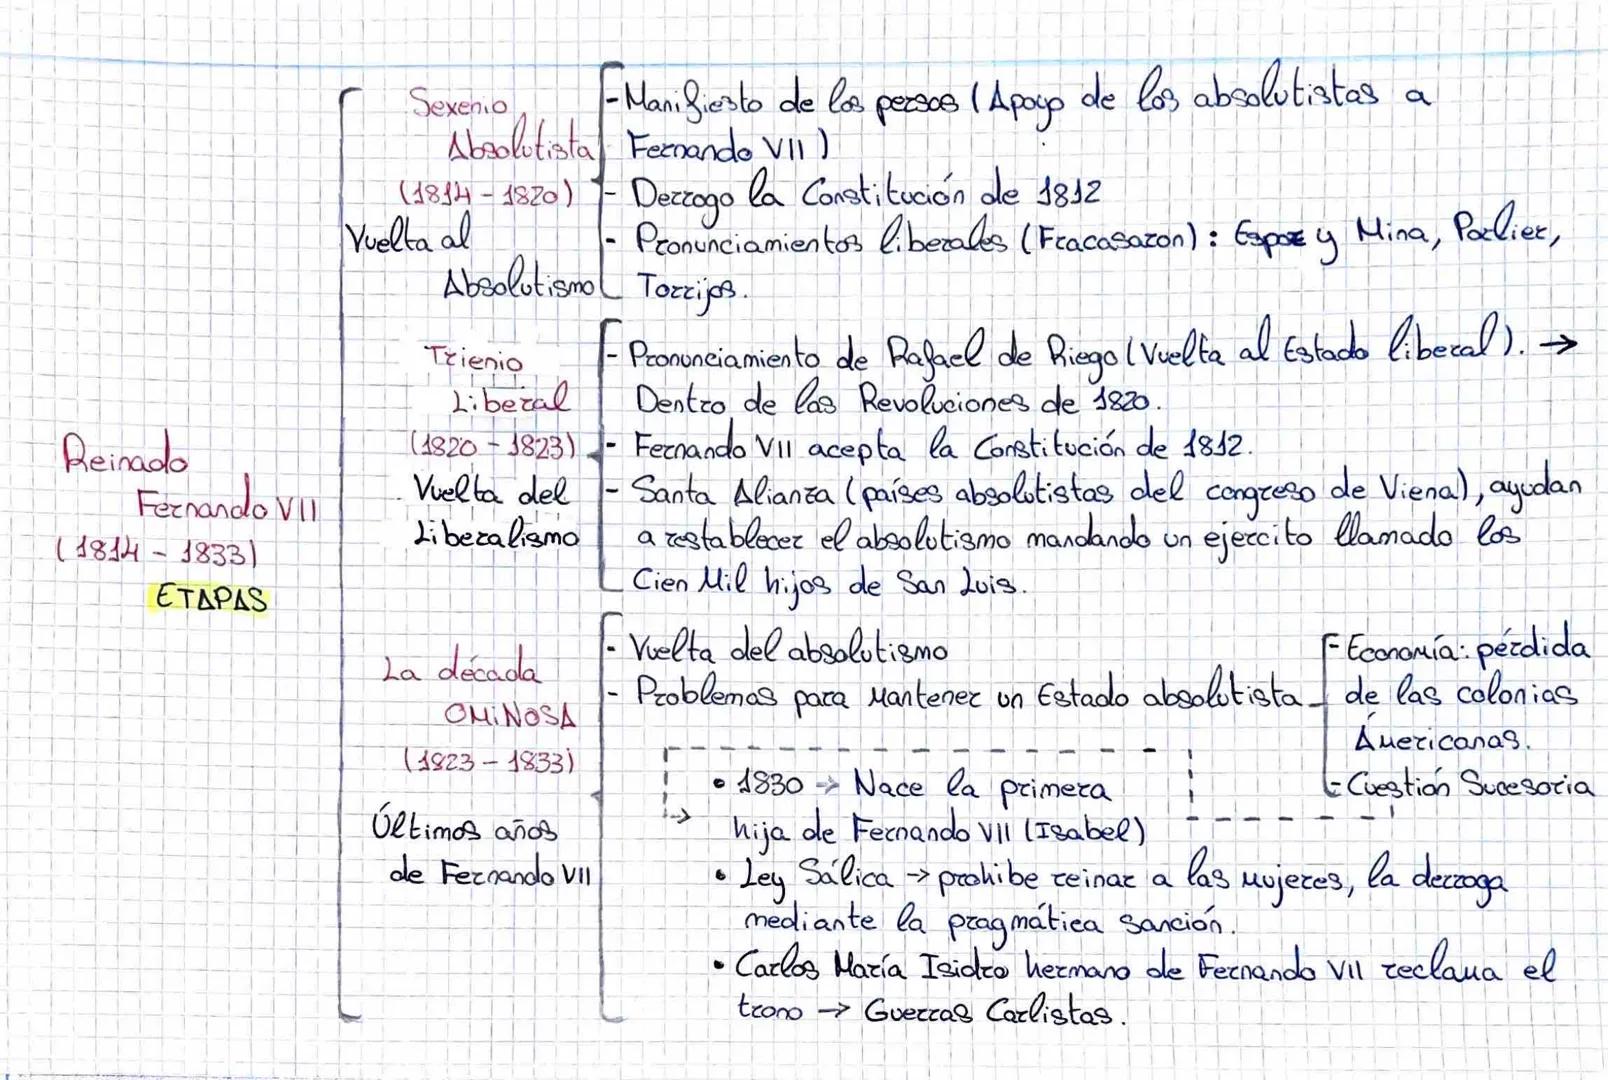 Reinado
Fernando VII
(1814 - 1833)
ETAPAS
Sexenio
Absolutista
(1814 - 1820)
Vuelta al
Absolutismo
- Manifiesto de los persas (Apoyo de los absolutistas a
Fernando VII)
- Derrogo la Constitución de 1812
- Pronunciamientos liberales (Fracasaron): Espoz y Mina, Porlier,
Torrijos.
Trienio
Liberal
(1820 - 1823)
Vuelta del
Liberalismo
- Pronunciamiento de Rafael de Riego (Vuelta al Estado liberal). →
Dentro de las Revoluciones de 1820.
- Fernando VII acepta la Constitución de 1812.
- Santa Alianza (países absolutistas del congreso de Viena), ayudan
a restablecer el absolutismo mandando un ejercito llamado los
Cien Mil hijos de San Luis.
La década
OMINOSA
(1823 - 1833)
Últimos años
de Fernando VII
- Vuelta del absolutismo
- Problemas para mantener un Estado absolutista
- Economía: pérdida
de las colonias
Americanas.
- Cuestión Sucesoria
• 1830 → Nace la primera
hija de Fernando VII (Isabel)
• Ley Sálica → prohibe reinar a las mujeres, la derroga
mediante la pragmática sanción.
• Carlos María Isidro hermano de Fernando VII reclama el
trono → Guerras Carlistas.